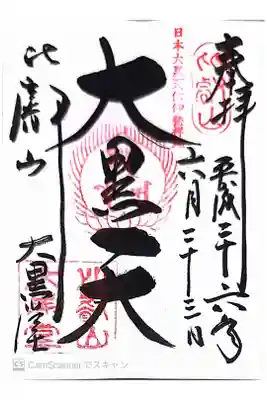 奉拝
平成二十六年
六月二十三日
大黒天
比叡山
大黒堂
CS CamScanner でスキャン